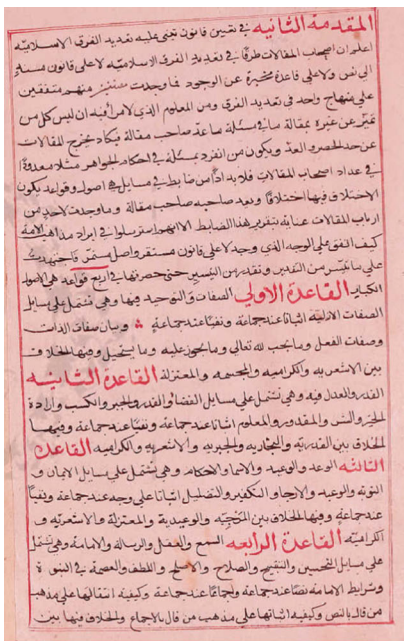 المقدمة الثانيه في تعيين قانون تبنى عليه تعديد الفرق الاسلاميه
اعلم ان اصحاب المقالات طرقا في تعديد الفرق الاسلاميه لا على قانون مستند
الى نص ولا على قاعدة مخبرة عن الوجود فما وجدت منهم متفقين
على منهاج واحد في تعديد الفرق ومن المعلوم الذي لا مراء فيه ان ليس كل من
تميز عن غيره بمقالة ما في مسئلة ما عد صاحب مقالة فيكاد يخرج المقالات
عن حد الحصر والعد ويكون من انفرد بمسئلة في احكام الجواهر مثلا معدودا
في عداد اصحاب المقالات فلا بد اذا من ضابط في مسايل هي اصول وقواعد يكون
الاختلاف فيها اختلافا ويعد صاحبه صاحب مقالة وما وجدت لاحد من
ارباب المقالات عناية بتقرير هذا الضابط الا انهم استرسلوا في ايراد مذاهب الامة
كيف اتفق على الوجه الذي وجد لا على قانون مستقر واصل مستمر فاجتهدت
على ما تيسر من التقدير وتقدر من التيسير حتى حصرتها في اربع قواعد هي الاصول
الكبار القاعدة الاولى الصفات والتوحيد فيها وهي تشتمل على مسايل
الصفات الازلية اثباتا عند جماعة ونفيا عند جماعة وبيان صفات الذات
وصفات الفعل وما يجب لله تعالى وما يجوز عليه وما يستحيل وفيها الخلاف
بين الاشعريه والكراميه والمجسمه والمعتزلة القاعدة الثانيه
القدر والعدل فيه وهي تشتمل على مسايل القضا والقدر والجبر والكسب وارادة
الخير والشر والمقدور والمعلوم اثباتا عند جماعة ونفيا عند جماعة وفيها
الخلاف بين القدريه والنجاريه والجبريه والاشعريه والكراميه القاعدة
الثالثه الوعد والوعيد والاسما والاحكام وهي تشتمل على مسايل الايمان و
التوبه والوعيد والارجا والتكفير والتضليل اثباتا على وجه عند جماعة ونفيا
عند جماعة وفيها الخلاف بين المرجيه والوعيدية والمعتزلة والاشعريه و
الكراميه القاعدة الرابعه السمع والعقل والرسالة والامامة وهي تشتمل
على مسايل التحسين والتقبيح والصلاح والاصلح واللطف والعصمة في النبوة
وشرايط الامامة نصا عند جماعة واجماعا عند جماعة وكيفية انتقالها على مذهب
من قال بالنص وكيفيه اثباتها على مذهب من قال بالاجماع والخلاف فيها بين